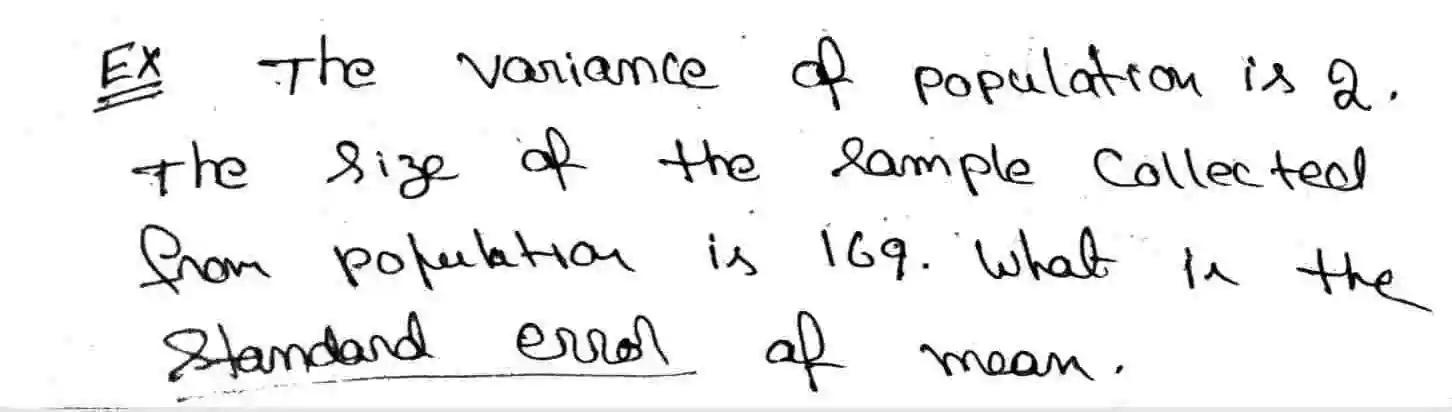 Ex The variance of population is 2.
The size of the sample collected
from population is 169. What is the
standard error of mean.